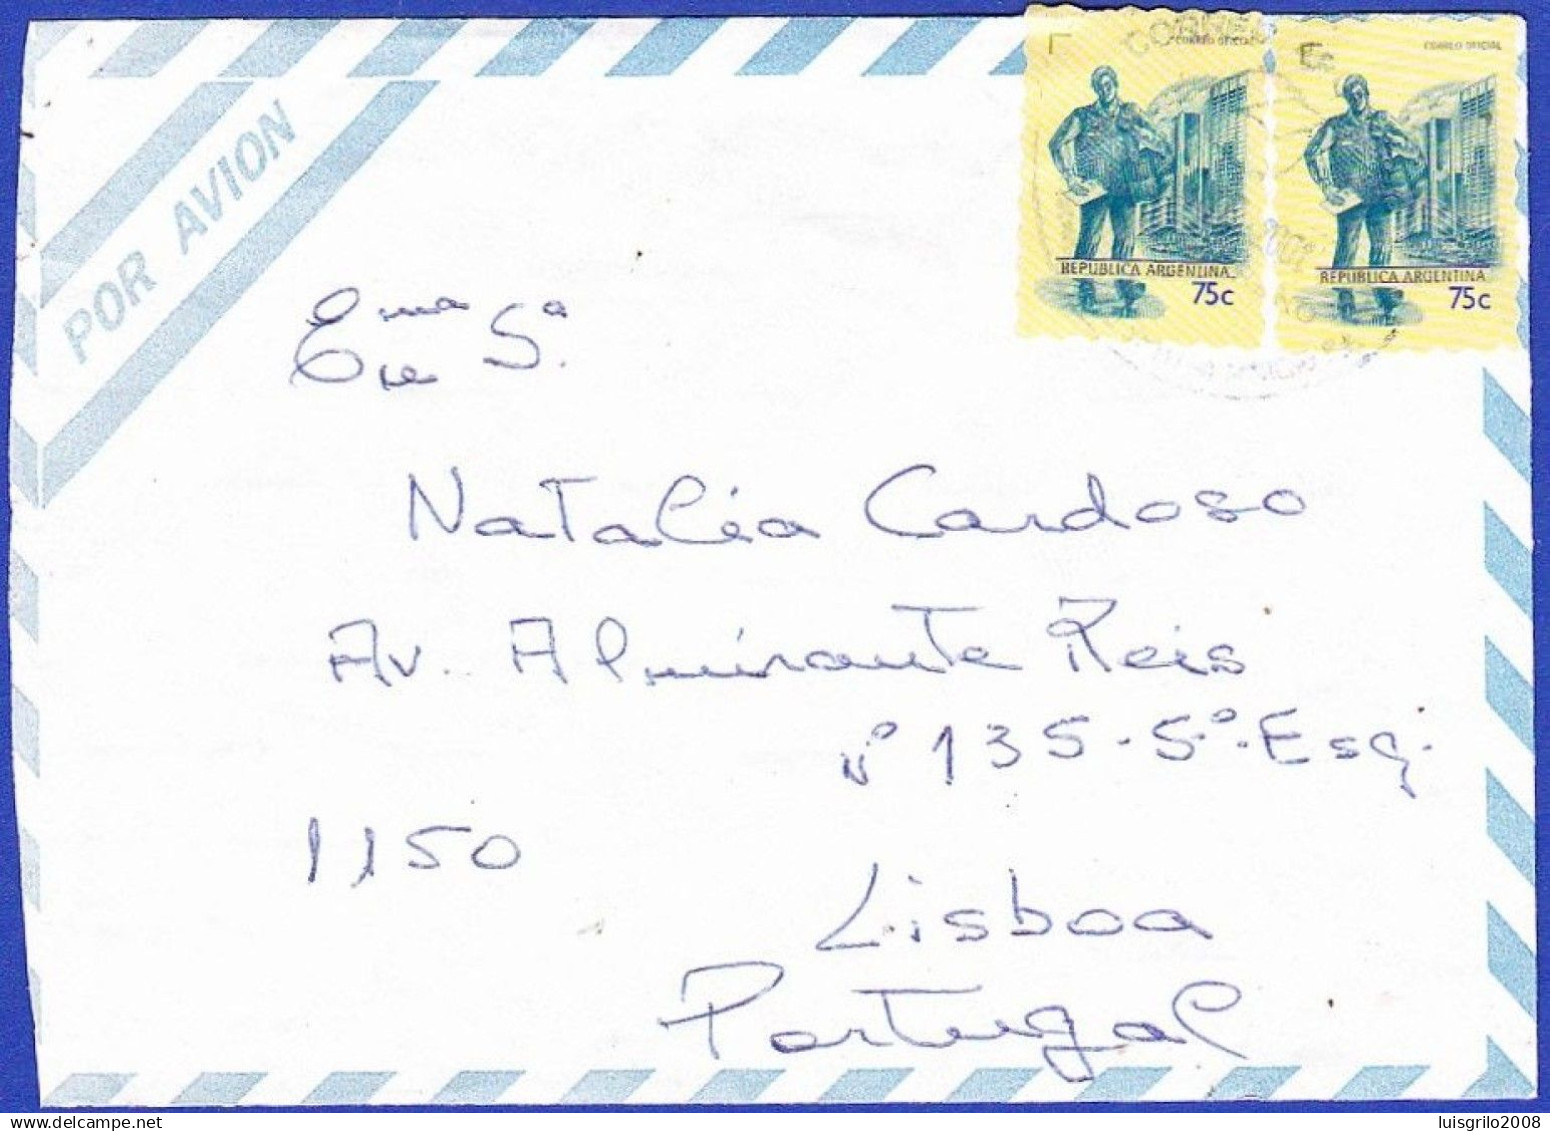 CORREO OFICIAL
CORREO OFICIAL
POR AVION
REPUBLICA ARGENTINA
75c
REPUBLICA ARGENTINA
75c
Exma Sª.
Natalia Cardoso
Av. Almirante Reis
nº 135-5º-Esq.
1150
Lisboa
Portugal
luisgrilo2008